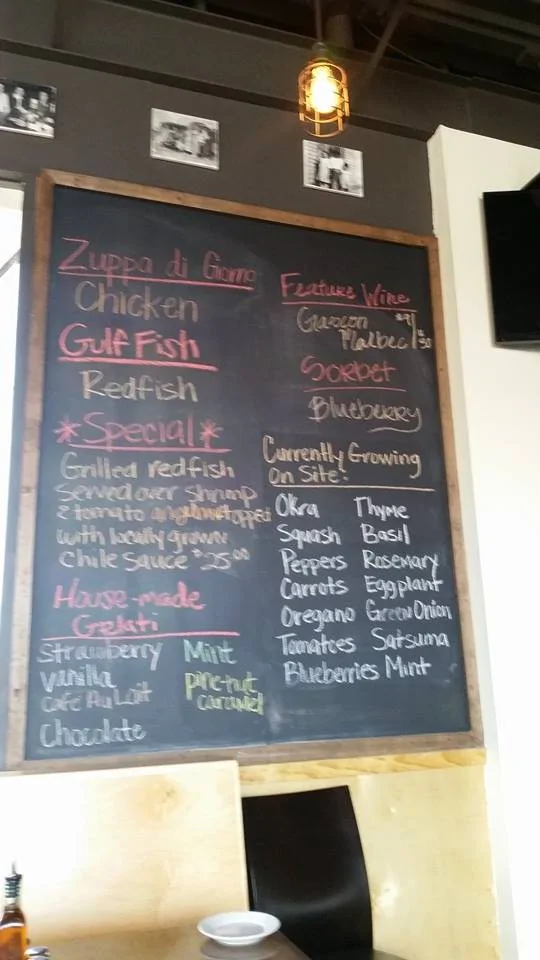 Zuppa di Giorno
Chicken
Gulf Fish
Redfish
*Special*
Grilled redfish
Served over shrimp
& tomato topped
with locally grown
Chile Sauce $25.00
House-made
Gelati
Strawberry
Vanilla
Café Au Lait
Chocolate
Mint
pine-nut
caramel
Feature Wine
Gascon
Malbec
Sorbet
Blueberry
Currently Growing
On Site:
Okra Thyme
Squash Basil
Peppers Rosemary
Carrots Eggplant
Oregano Green Onion
Tomatoes Satsuma
Blueberries Mint